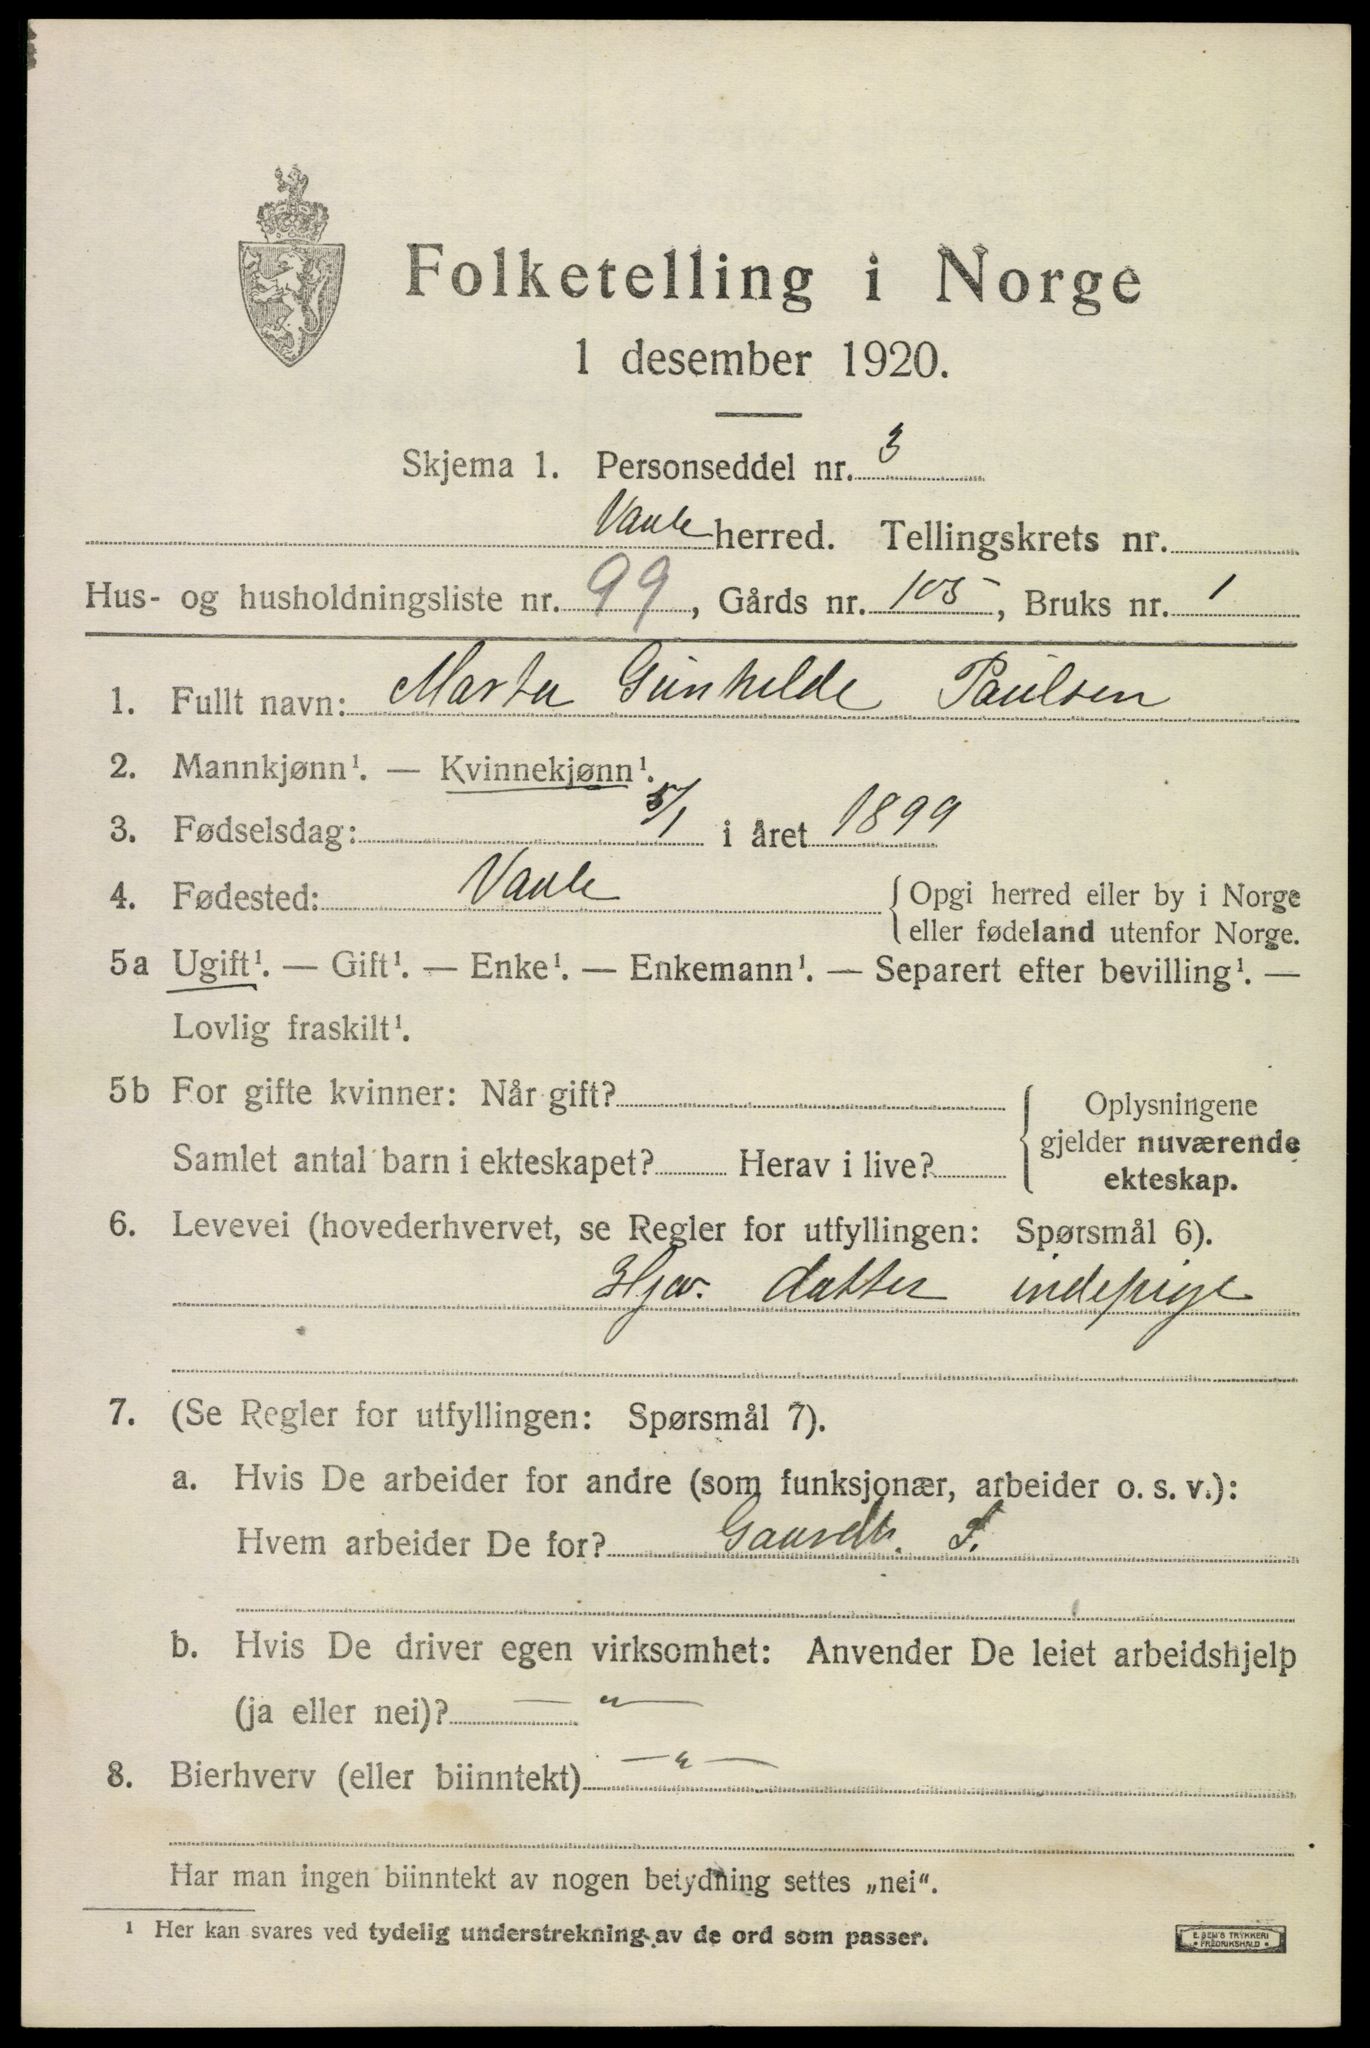 Folketelling i Norge
1 desember 1920.
Skjema 1. Personseddel nr. 3
Vaale herred. Tellingskrets nr.
Hus- og husholdningsliste nr. 99, Gårds nr. 105, Bruks nr. 1
1. Fullt navn: Marta Gunhilde Paulsen
2. Mannkjønn¹. — Kvinnekjønn¹.
3. Fødselsdag: 5/1 i året 1899
4. Fødested: Vaale { Opgi herred eller by i Norge
eller fødeland utenfor Norge.
5a Ugift¹. — Gift¹. — Enke¹. — Enkemann¹. — Separert efter bevilling¹. —
Lovlig fraskilt¹.
5b For gifte kvinner: Når gift?
Samlet antal barn i ekteskapet? Herav i live?
Oplysningene
gjelder nuværende
ekteskap.
6. Levevei (hovederhvervet, se Regler for utfyllingen: Spørsmål 6).
Hjv. datter indepige
7. (Se Regler for utfyllingen: Spørsmål 7).
a. Hvis De arbeider for andre (som funksjonær, arbeider o. s. v.):
Hvem arbeider De for?
b. Hvis De driver egen virksomhet: Anvender De leiet arbeidshjelp
(ja eller nei)? — „ —
8. Bierhverv (eller biinntekt) — „ —
Har man ingen biinntekt av nogen betydning settes „nei".
¹ Her kan svares ved tydelig understrekning av de ord som passer.
E. SEM'S TRYKKERI
• FREDRIKSHALD •